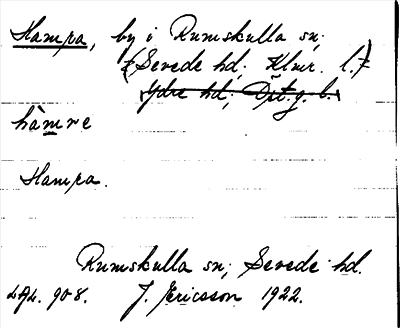 Hampa, by i Rumskulla sn;
(Sevede hd; Klmr. l.)
Ydre hd; Östg. l.
hàmre
Hampa.
Rumskulla sn; Sevede hd.
908. J. Ericsson 1922.